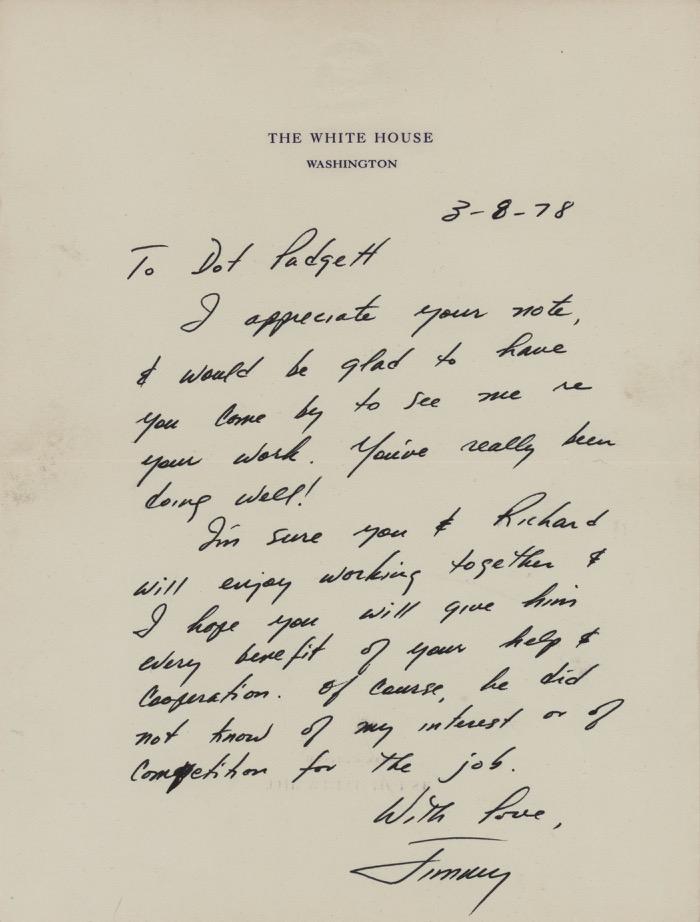 THE WHITE HOUSE
WASHINGTON
3-8-78
To Dot Padgett
I appreciate your note,
& would be glad to have
you come by to see me re
your work. You've really been
doing well!
I'm sure you & Richard
will enjoy working together &
I hope you will give him
every benefit of your help &
cooperation. Of course, he did
not know of my interest or of
competition for the job.
With love,
Jimmy